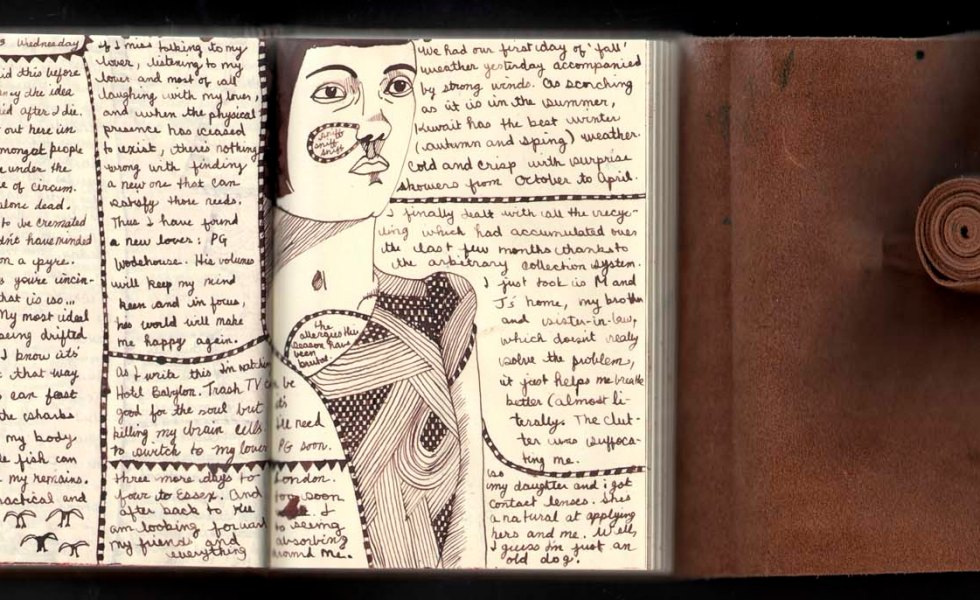 Wednesday
id this before
ny the idea
id after I die.
out here in
mongst people
e under the
e of circum.
alone dead.
to be cremated
dn't have minded
on a pyre.
s you're incin-
that is so...
My most ideal
being drifted
I know it's
that way
can feast
the sharks
my body
le fish can
my remains.
ractical and
if I miss talking to my
lover, listening to my
lover and most of all
laughing with my lover,
and when the physical
presence has ceased
to exist, there's nothing
wrong with finding
a new one that can
satisfy those needs.
Thus I have found
a new lover: PG
Wodehouse. His volumes
will keep my mind
keen and in focus,
his world will make
me happy again.
As I write this I'm watching
Hotel Babylon. Trash TV can be
good for the soul but it's
killing my brain cells. I'll need
to switch to my lover PG soon.
three more days to London.
four to Essex. And too soon
after back to the
am looking forward to seeing
my friends and absorbing
everything around me.
sniff
sniff
sniff
the
allergies this
season have
been
brutal.
We had our first day of 'fall'
weather yesterday accompanied
by strong winds. As scorching
as it is in the summer,
Kuwait has the best winter
(autumn and sping) weather.
Cold and crisp with surprise
showers from October to April.
I finally dealt with all the recyc-
ling which had accumulated over
the last few months thanks to
the arbitrary collection system.
I just took is M and
J's' home, my brother
and sister-in-law,
which doesn't really
solve the problem,
it just helps me breathe
better (almost li-
terally. The clut-
ter was suffoca-
ting me.
so
my daughter and i got
contact lenses. She's
a natural at applying
hers and me. Well,
I guess I'm just an
old dog.